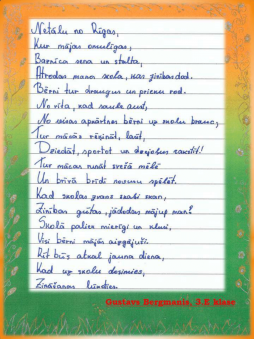 Netālu no Rīgas,
Kur mājas omulīgas,
Barnīca sena un stalta,
Atrodas mana skola, kas zinības dod.
Bērni tur draugus un prieku rod.
No rīta, kad saule aust,
No visas apkārtnes bērni uz skolu brauc,
Tur mācās rēķināt, lasīt,
Dziedāt, sportot un
Tur māca runāt svešā mēlē
Un brīvā brīdī spēlēt.
Kad skolas zvans skaļi skan,
Zinības gūtas, jādodas mājup man?
Skolā paliek mierīgi un klusi,
Visi bērni mājās aizgājuši.
Rīt būs atkal jauna diena,
Kad uz skolu dosimies,
Zināšanas
Gustavs Bergmanis, 3.E klase